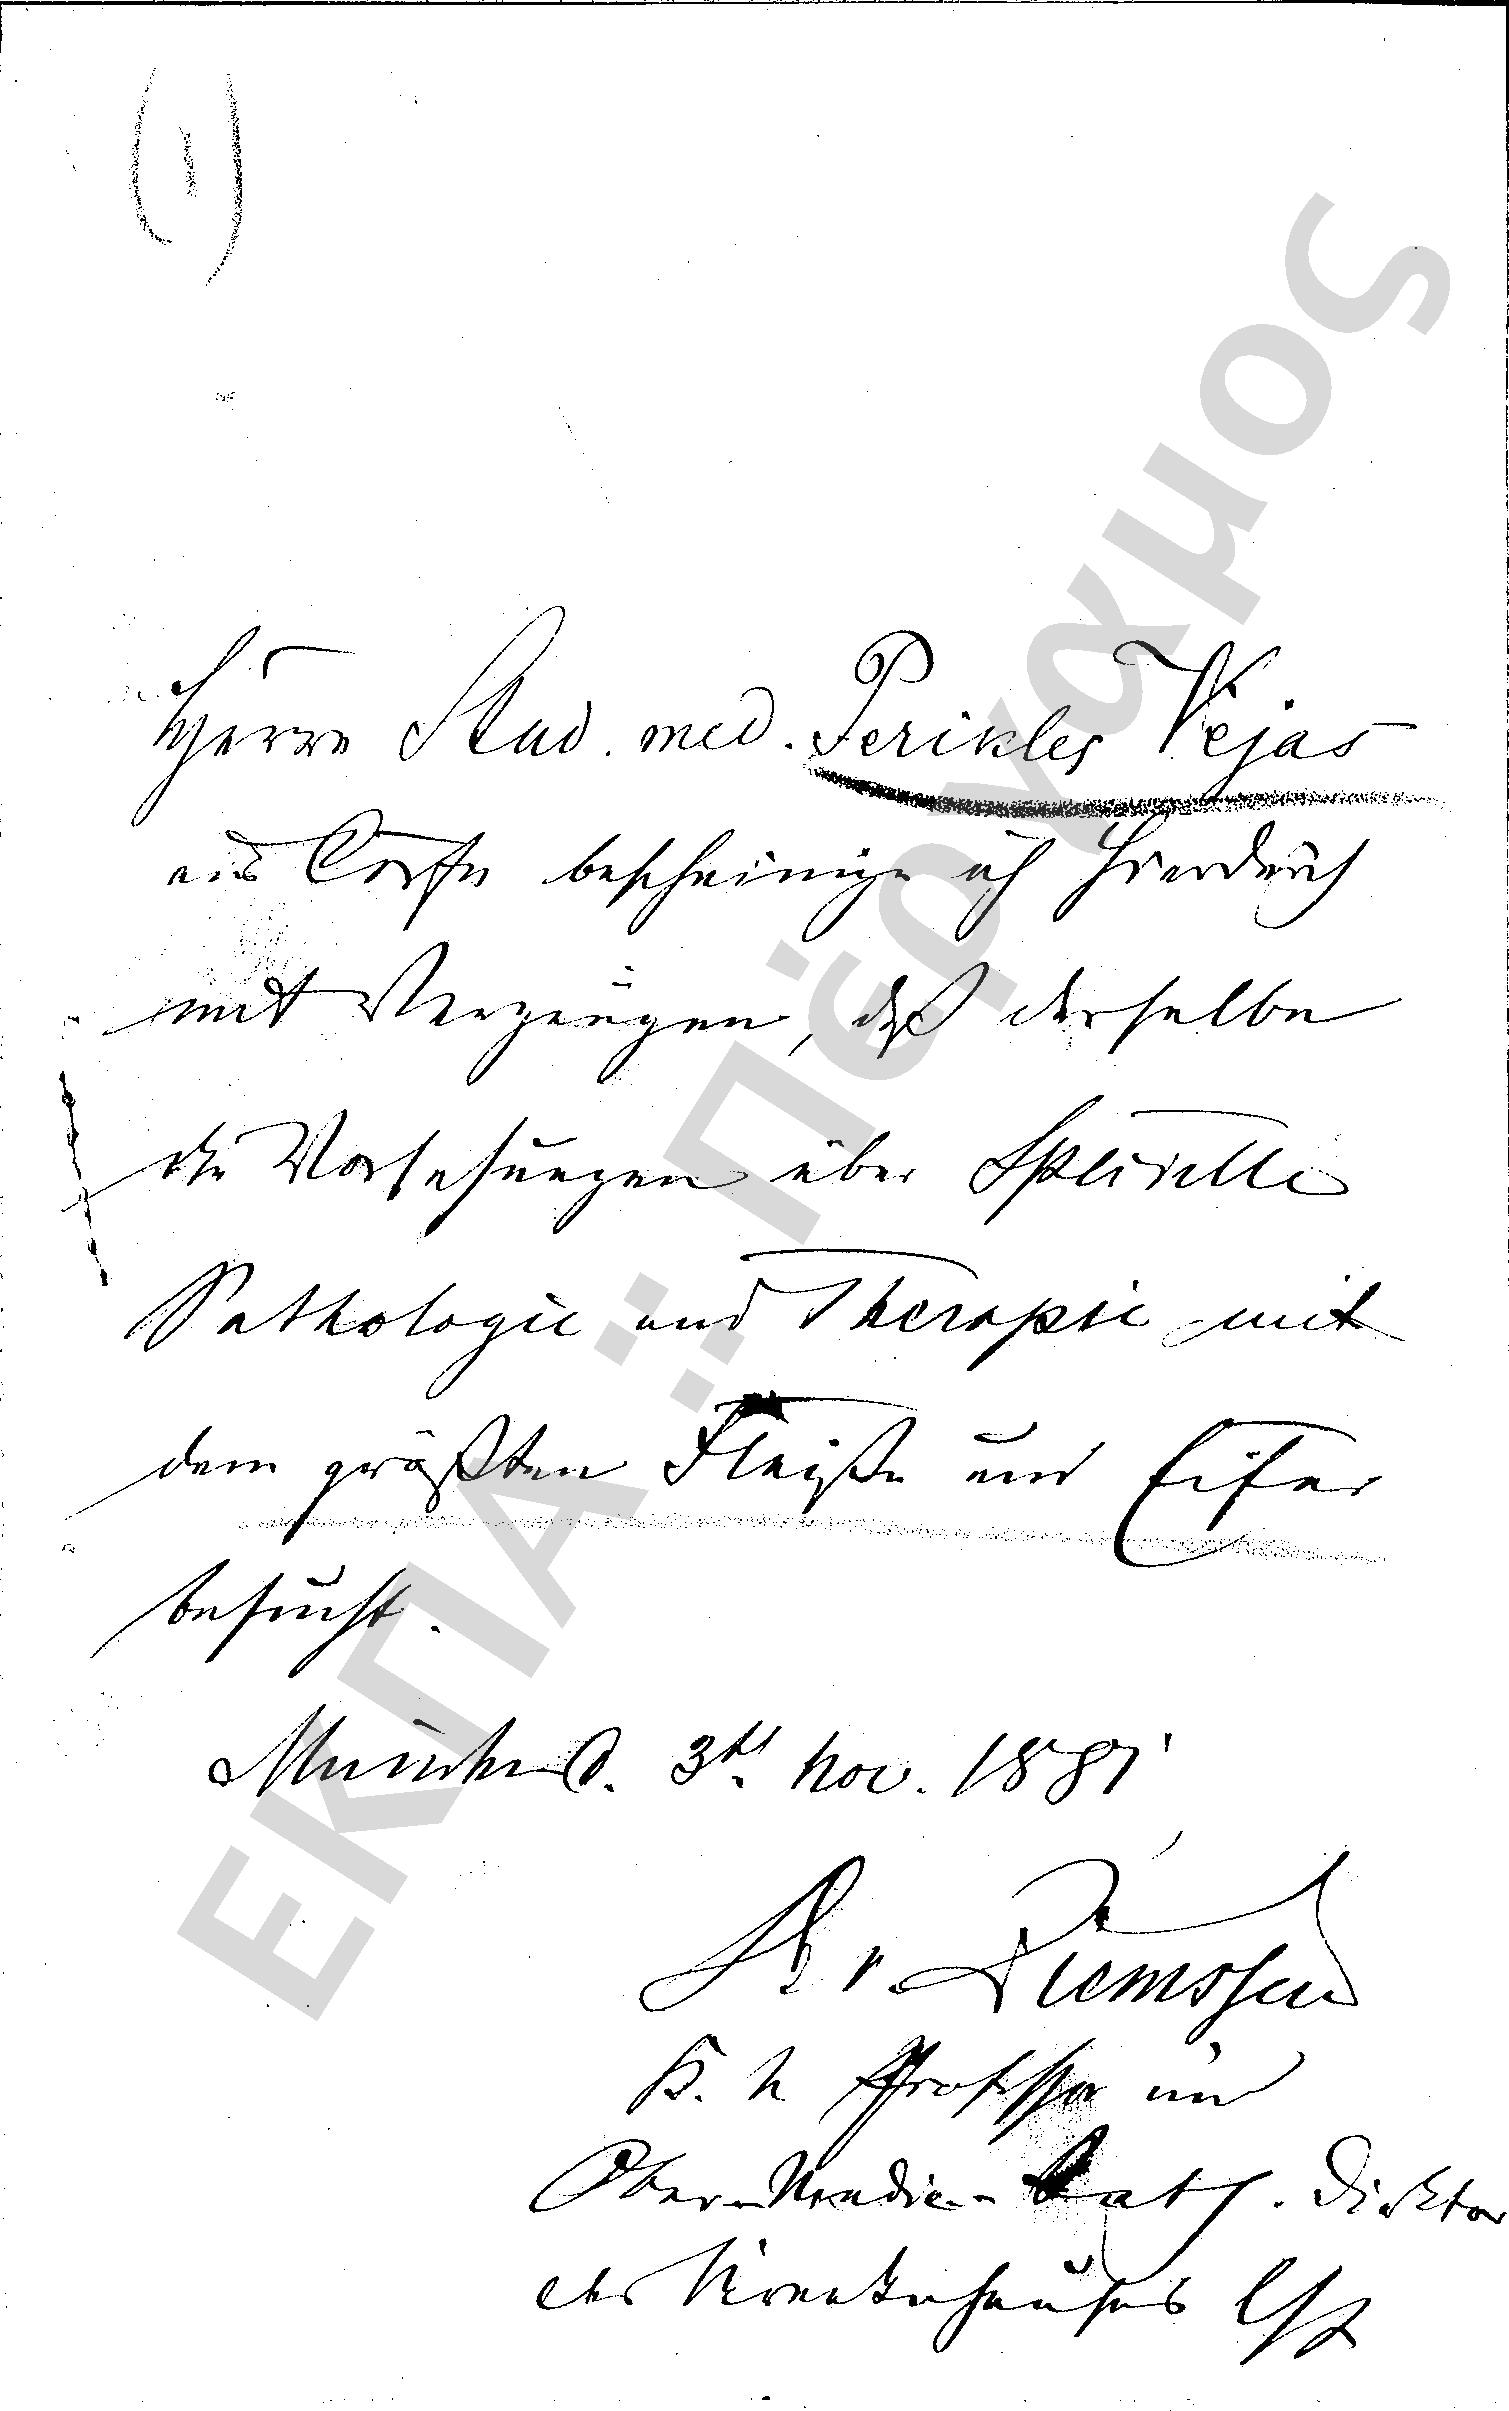 (1)
Herrn Stud. med. Perikles Vejas
aus Corfu bescheinige ich hierdurch
mit Vergnügen, daß derselbe
die Vorlesungen über Specielle
Pathologie und Therapie mit
dem größten Fleiße und Eifer
besucht.
München d. 3th Nov. 1881
v. Ziemssen
K. Professor und
Ober-Medic.-Rath. Direktor
des Krankenhauses
ΕΚΠΑ Πέργαμος